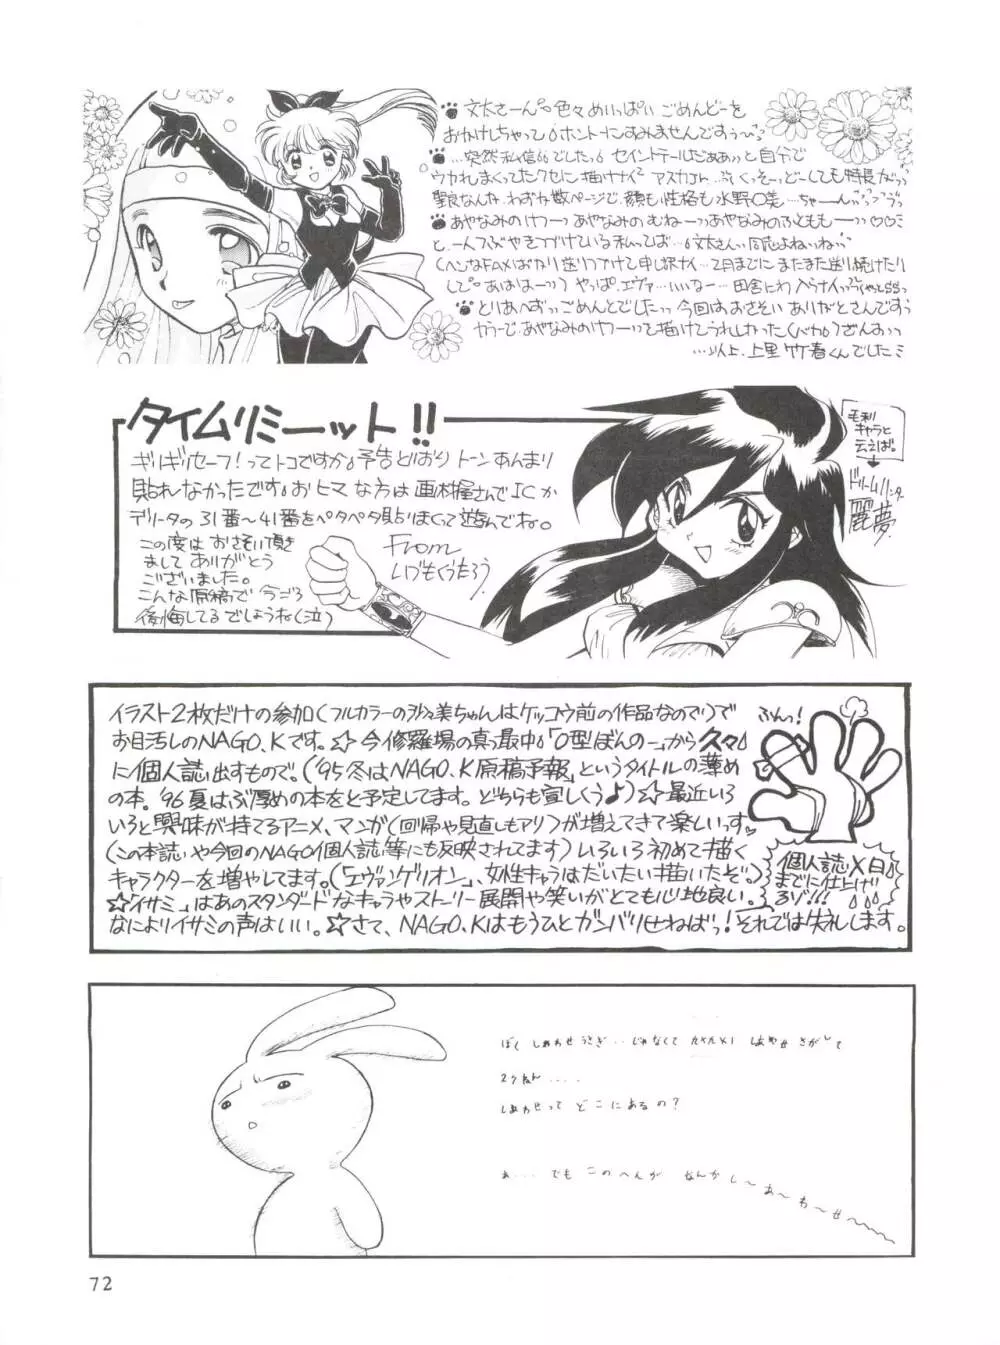 文太さーん 色々めいっぱい ごめんどーを
おかけしちゃって ホントーにすみませんですぅ〜
…突然私信 でしたっ セイントテールだぁぁっと自分で
ウカれまくってたクセに 描けナイ アスカJr.…くっそーっどーしても特長がっ
聖良なんか わずか数ページで、顔も性格も水野〇美…ちゃーんっ
あやなみのけつーっ あやなみの むねーっ あやなみのふとももーっ♡♡
と、一人つぶやきつづけている私ってば… 文太さんっ同志よねっ ねっ
(ヘンなFAXばかり送りつけて申し訳ナイ…2月までに またまた送り続けたり
して あはは はーっ) やっぱ、エヴァ…いいなー…田舎にわ
とりあへずっ ごめんとでしたっ 今回は おさそい ありがとさんですぅ
カラーで、あやなみのけつーっを描けてうれしかった(バカ) ぎんおっ
…以上、上里竹春くんでした
タイムリミーット!!
ギリギリセーフ!ってトコですか 予告どおり トーンあんまり
貼れなかったです おヒマな方は画材屋さんでICか
デリータの31番〜41番をペタペタ貼りまくって遊んでね。
この度は おさそい頂き
まして ありがとう
ございました。
こんな原稿で 今ごろ
後悔してるでしょうね(泣)
From
いづもくうたろう
毛利
キャラと
云えば。
ドリームハンター
麗夢
イラスト2枚だけの参加(フルカラーの美ちゃんはケッコウ前の作品なので)で
お目汚しのNAGO.Kです。☆今修羅場の真っ最中 「O型ぼんのー」から久々
に個人誌出すもので。(’95冬はNAGO.K原稿予報」というタイトルの薄め
の本。’96夏はぶ厚めの本をと予定してます。どちらも宜しくぅ♪)☆最近いろ
いろと興味が持てるアニメ、マンガ(回帰や見直しもアリ)が増えてきて楽しいっす
(この本誌や今回のNAGO個人誌等にも反映されてます)いろいろ初めて描く
キャラクターを増やしてます。(「エヴァンゲリオン」、女性キャラはだいたい描いたぞ。)
☆「イサミ」はあのスタンダードなキャラやストーリー展開や笑いがとても心地良い。
なによりイサミの声はいい。☆さて、NAGO.Kはもうひとガンバリせねばっ!それでは失礼します。
ふんっ!
個人誌〆日
までに仕上げ
るゾ!!!
ぼく しあわせうさぎ‥じゃなくて しあわせ さがして
2クねん....
しあわせって どこにあるの?
あ... でも このへんが なんか し〜あ〜わ〜せ〜
72